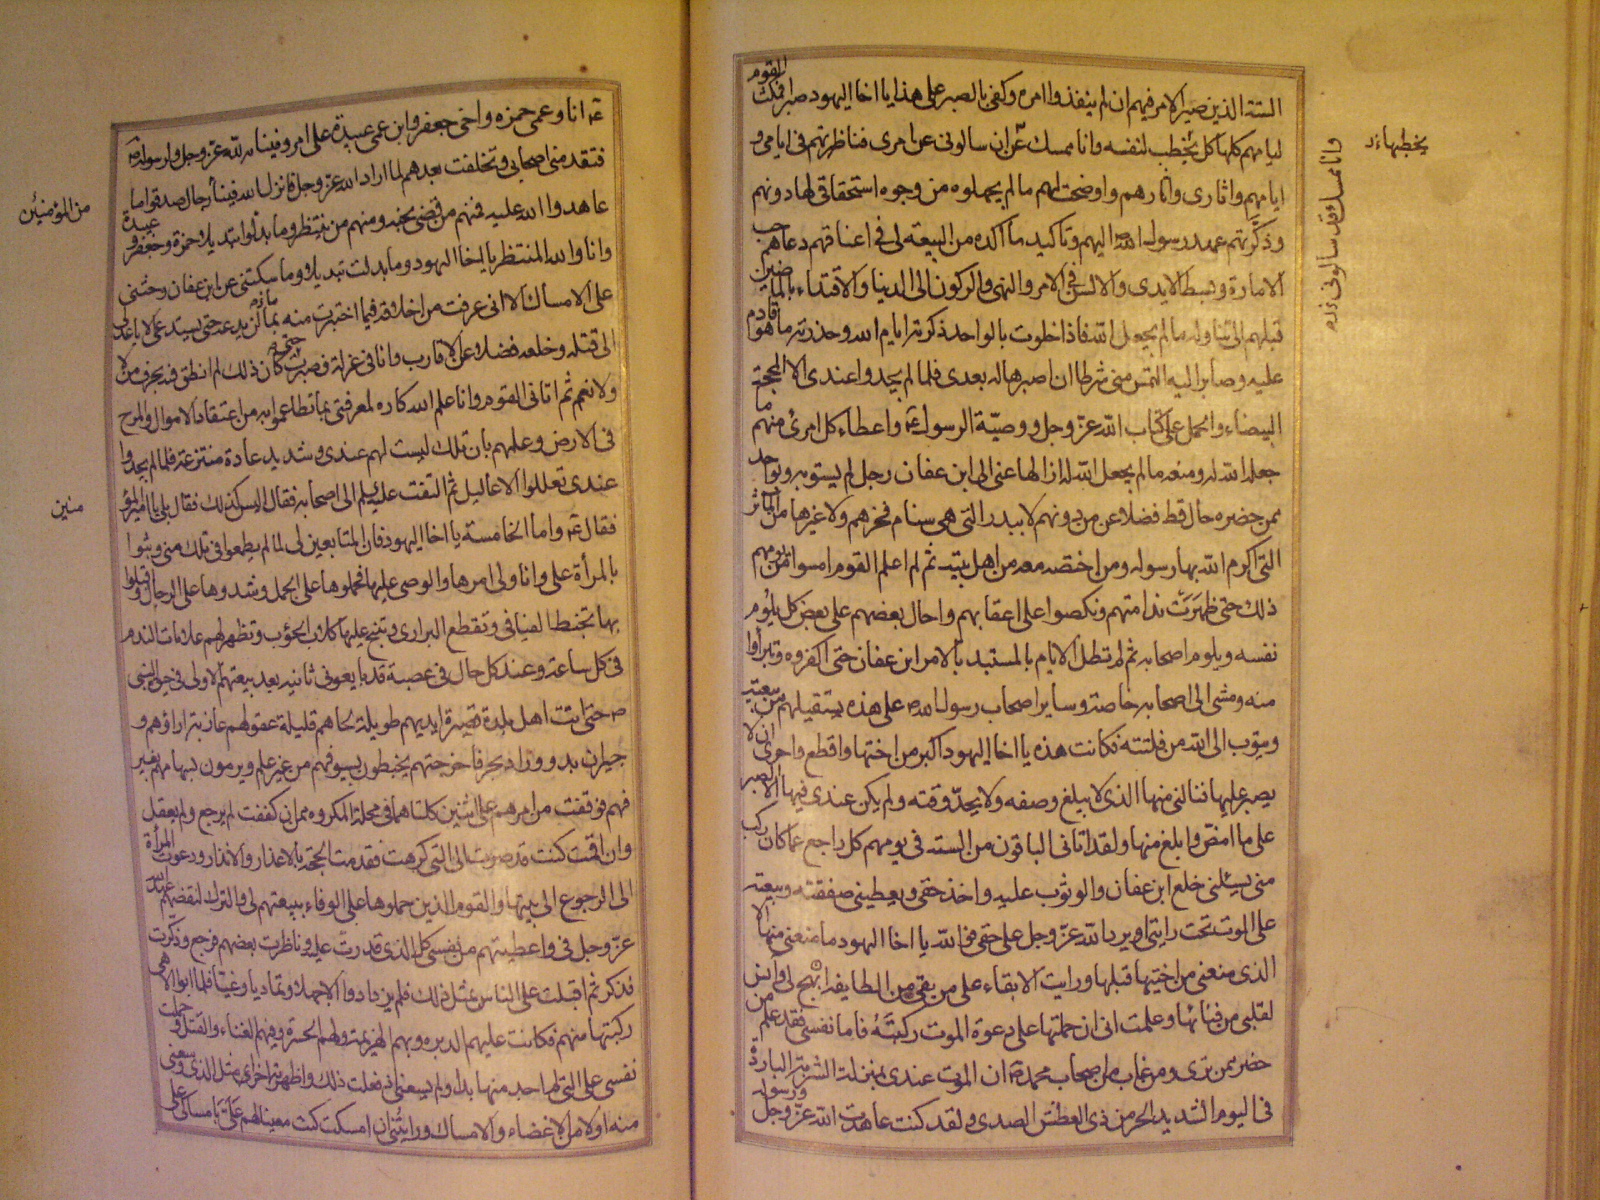 الستة الذين صير الامر فيهم ان لم ينفذوا امره وكفى بالصبر على هذا يا اخا اليهود صبرا فمكث القوم
ايامهم كلها كل يخطب لنفسه وانا ممسك عن ان سالونى عن امرى فناظرتهم فى ايامى و
ايامهم واثارى واثارهم واوضحت لهم ما لم يجهلوه من وجوه استحقاقى لها دونهم
وذكرتهم عهد رسول الله اليهم وتاكيد ما اكده من البيعة لى فى اعناقهم دعاهم حب
الامارة وبسط الايدى والالسن فى الامر والنهى والركون الى الدنيا والاقتداء بالماضين
قبلهم الى تناول ما لم يجعل الله فاذا خلوت بالواحد ذكرته ايام الله وحذرته ما هو قادم
عليه وصاير اليه التمس منى شرطا ان اصيرها له بعدى فلما لم يجدوا عندى الا المحجة
البيضاء والحمل على كتاب الله عز وجل ووصية الرسول واعطاء كل امرئ منهم ما
جعله الله له ومنعه ما لم يجعل الله له ازالها عنى الى ابن عفان رجل لم يستو به وبواحد
ممن حضره حال قط فضلا عن من دونهم لا ببدر التى هى سنام فخرهم ولا غيرها من المآثر
التى اكرم الله بها رسوله ومن اختصه معه من اهل بيته ثم لم اعلم القوم امسوا من يومهم
ذلك حتى ظهرت ندامتهم ونكصوا على اعقابهم واحال بعضهم على بعض كل يلوم
نفسه ويلوم اصحابه ثم لم تطل الايام بالمستبد بالامر ابن عفان حتى اكفروه وتبراوا
منه ومشى الى اصحابه خاصة وساير اصحاب رسول الله على هذه يستقيلهم من بيعته
ويتوب الى الله من فلتته فكانت هذه يا اخا اليهود اكبر من اختها واقطع واحرى ان لا
يصبر عليها فنالنى منها الذى لا يبلغ وصفه ولا يحد وقته ولم يكن عندى فيها الا الصبر
على ما امض وابلغ منها ولقد اتانى الباقون من الستة فى يومهم كل راجع عما كان ركب
منى يسئلنى خلع ابن عفان والوثوب عليه واخذ حقى ويعطينى صفقته وبيعته
على الموت تحت رايتى او يرد الله عز وجل على حقى فوالله يا اخا اليهود ما منعنى منها الا
الذى منعنى من اختيها قبلها ورايت الابقاء على من بقى من الطايفة ابهج لى وآنس
لقلبى من فنائها وعلمت انى ان حملتها على دعوة الموت ركبته فاما نفسى فقد علم من
حضر ممن ترى ومن غاب من اصحاب محمد ان الموت عندى بمنزلة الشربة الباردة
فى اليوم الشديد الحر من ذى العطش الصدى ولقد كنت عاهدت الله عز وجل ورسوله
يخطبها
وانا ممسك وقد سالونى
انا وعمى حمزه واخى جعفر وابن عمى عبيدة على امر وفينا به لله عز وجل ولرسوله
فتقدمنى اصحابى وتخلفت بعدهم لما اراد الله عز وجل فانزل الله فينا رجال صدقوا ما
عاهدوا الله عليه فمنهم من قضى نحبه ومنهم من ينتظر وما بدلوا تبديلا حمزة وجعفر و عبيدة
وانا والله المنتظر يا اخا اليهود وما بدلت تبديلا وما سكتنى عن ابن عفان وحثنى
على الامساك الا انى عرفت من اخلاقه فيما اختبرت منه بما لن يدعه حتى يستدعى الاباعد
الى قتله وخلعه فضلا عن الاقارب وانا فى عزلة فصبرت حتى كان ذلك لم انطق فيه بحرف من لا
ولا نعم ثم اتانى القوم وانا علم الله كاره لمعرفتى بما تطاعموا به من اعتقاد الاموال والمرح
فى الارض وعلمهم بان تلك ليست لهم عندى وشديد عادة منتزعة فلما لم يجدوا
عندى تعللوا الاعاليل ثم التفت الى اصحابه فقال اليس كذلك فقالوا بلى يا امير المؤ
فقال واما الخامسة يا اخا اليهود فان المتابعين لى لما لم يطمعوا فى تلك منى وثبوا
بالمرأة على وانا ولى امرها والوصى عليها فحملوها على الجمل وشدوها على الرحال واقبلوا
بها تخبط الفيافى وتقطع البرارى وتنبح عليها كلاب الحوئب وتظهر لهم علامات الندم
فى كل ساعة وعند كل حال فى عصبة قد بايعونى ثانية بعد بيعتهم الاولى فى حيوة النبى
حتى اتت اهل بلدة قصيرة ايديهم طويلة لحاهم قليلة عقولهم عازبة اراؤهم و
جيران بدو ووراد بحر فاخرجتهم يخبطون بسيوفهم من غير علم ويرمون بسهامهم بغير
فهم فوقفت من امرهم على اثنتين كلتاهما فى محلة المكروه ممن ان كففت لم يرجع ولم يعقل
وان اقمت كنت قد صرت الى التى كرهت فقدمت الحجة بالاعذار والانذار ودعوت المرأة
الى الرجوع الى بيتها والقوم الذين حملوها على الوفاء ببيعتهم لى والترك لنقضهم عهد الله
عز وجل فى واعطيتهم من نفسى كل الذى قدرت عليه وناظرت بعضهم فرجع وذكرت
فذكر ثم اقبلت على الناس بمثل ذلك فلم يزدادوا الا جهلا وتماديا وغيا فلما ابوا الا هى
ركبتها منهم فكانت عليهم الدبره وبهم الهزيمة ولهم الحسرة وفيهم الفناء والقتل وحملت
نفسى على التى لم اجد منها بدا ولم يسعنى اذ فعلت ذلك واظهرته اخرا مثل الذى وسعنى
منه اولا من الاغضاء والامساك ورايتنى ان امسكت كنت معينا لهم على بامساكى على
من المؤمنين
منين